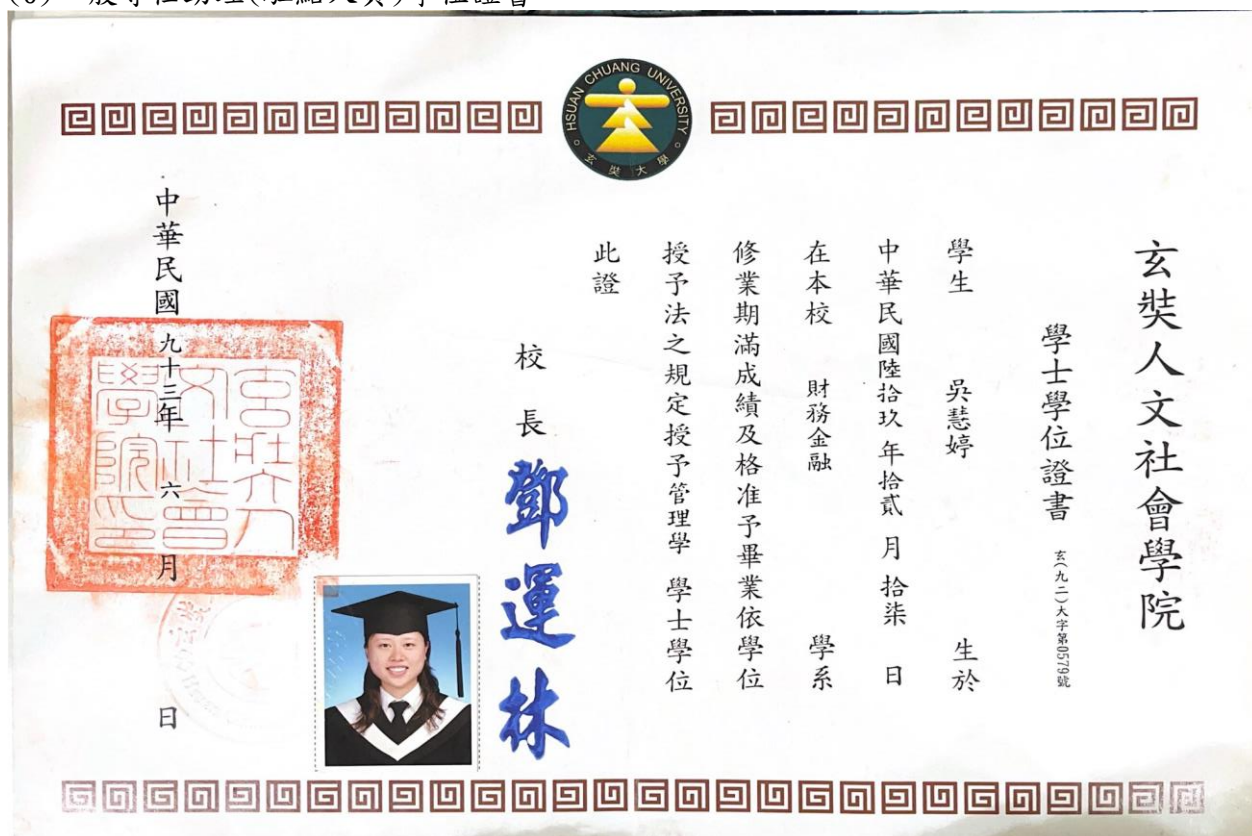 一般專任助理(駐點人員)學位證書
HSUAN CHUANG UNIVERSITY
玄奘大學
玄奘人文社會學院
學士學位證書
玄(九二)大字第0579號
學生 吳慧婷 生於
中華民國陸拾玖年拾貳月拾柒日
在本校 財務金融 學系
修業期滿成績及格准予畢業依學位
授予法之規定授予管理學 學士學位
此證
校長 鄧運林
中華民國九十三年六月 日
玄奘人文社會學院印